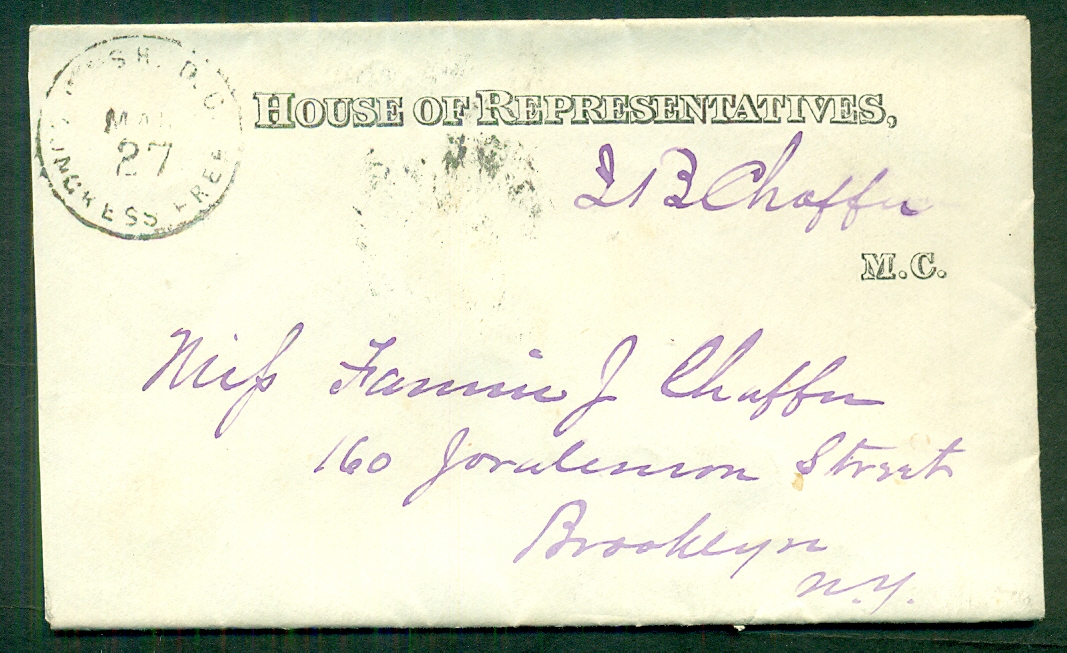 WASH. D.C.
MAR
27
CONGRESS FREE
HOUSE OF REPRESENTATIVES,
J B Chaffee
M.C.
Miss Fannie J Chaffee
160 Joralemon Street
Brooklyn
N.Y.